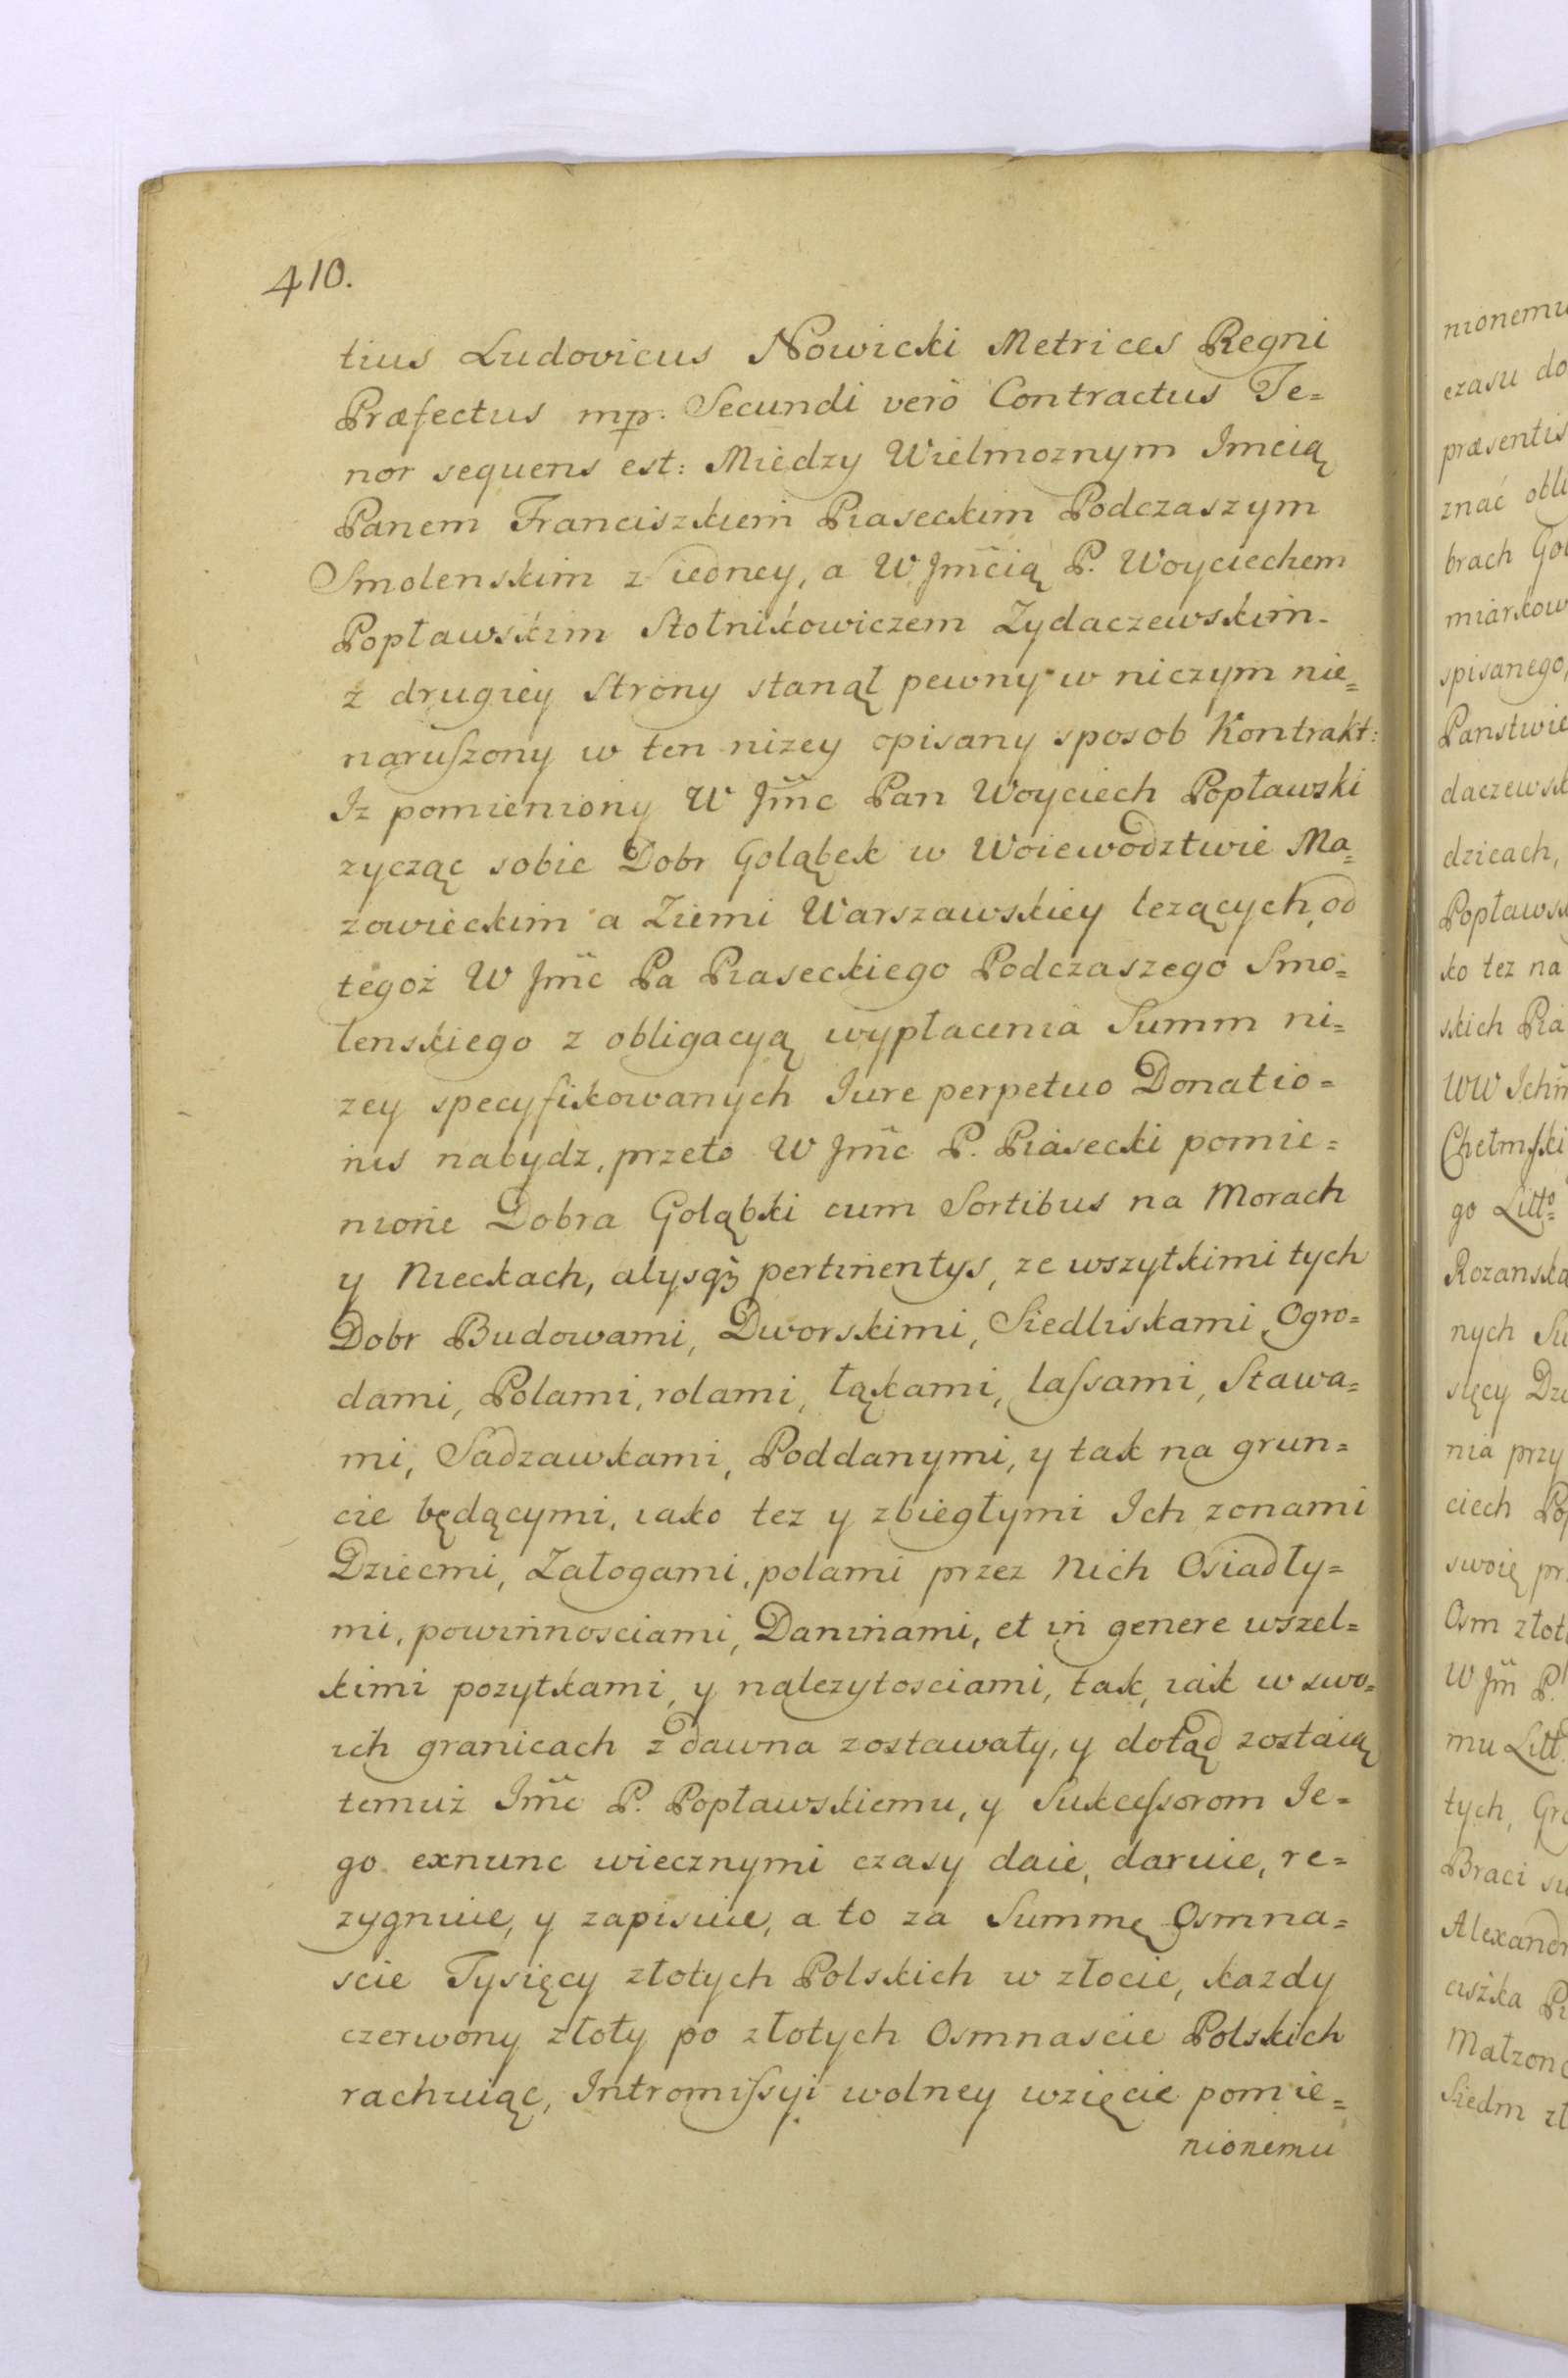 410.
tius Ludovicus Nowicki Metrices Regni
Præfectus mp. Secundi verò Contractus Te=
nor sequens est: Miedzy Wielmoznym Jmcią
Panem Franciszkiem Piaseckim Podczaszym
Smolenskim z iedney, a W Jmcią P. Woyciechem
Popławskim Stolnikowiczem Zydaczewskim
z drugiey Strony stanął pewny w niczym nie=
naruszony w ten nizey opisany sposob Kontrakt:
Iz pomieniony W Jmc Pan Woyciech Popławski
zycząc sobie Dobr Goląbek w Woiewodztwie Ma=
zowieckim a Ziemi Warszawskiey lezących, od
tegoż W Jmc Pa Piaseckiego Podczaszego Smo=
lenskiego z obligacyą wypłacenia Summ ni=
zey specyfikowanych Iure perpetuo Donatio=
nis nabydz, przeto W Jmc P. Piasecki pomie=
nione Dobra Goląbki cum Sortibus na Morach
y Nieckach, alysq3 pertinentys, ze wszytkimi tych
Dobr Budowami, Dworskimi, Siedliskami, Ogro=
dami, Polami, rolami, łąkami, lassami, Stawa=
mi, Sadzawkami, Poddanymi, y tak na grun=
cie będącymi, iako tez y zbiegłymi Ich zonami
Dziecmi, Załogami, polami przez Nich Osiadły=
mi, powinnosciami, Daninami, et in genere wszel=
kimi pozytkami, y nalezytosciami, tak, iak w swo=
ich granicach z dawna zostawały, y dotąd zostaią
temuż Jmc P. Popławskiemu, y Sukcessorom Ie=
go exnunc wiecznymi czasy daie, daruie, re=
zygnuie, y zapisuie, a to za Summę Osmna=
scie Tysięcy złotych Polskich w złocie, kazdy
czerwony złoty po złotych Osmnascie Polskich
rachuiąc, Intromissyi wolney wzięcie pomie=
nionemu
nionemu
czasu do
præsentis
znać obli
brach Goł
miarkow
spisanego,
Panstwie
daczewsk
dzicach,
Popławsk
ko tez na
skich Pia
WW Ichm
Chełmski
go Litto=
Rozanska
nych Su
sięcy Dzi
nia przy
ciech Pop
swoię pr
Osm złot
W Jm P.
mu Litt
tych, Gro
Braci su
Alexandr
ciszka Pi
Małzono
Siedm zł